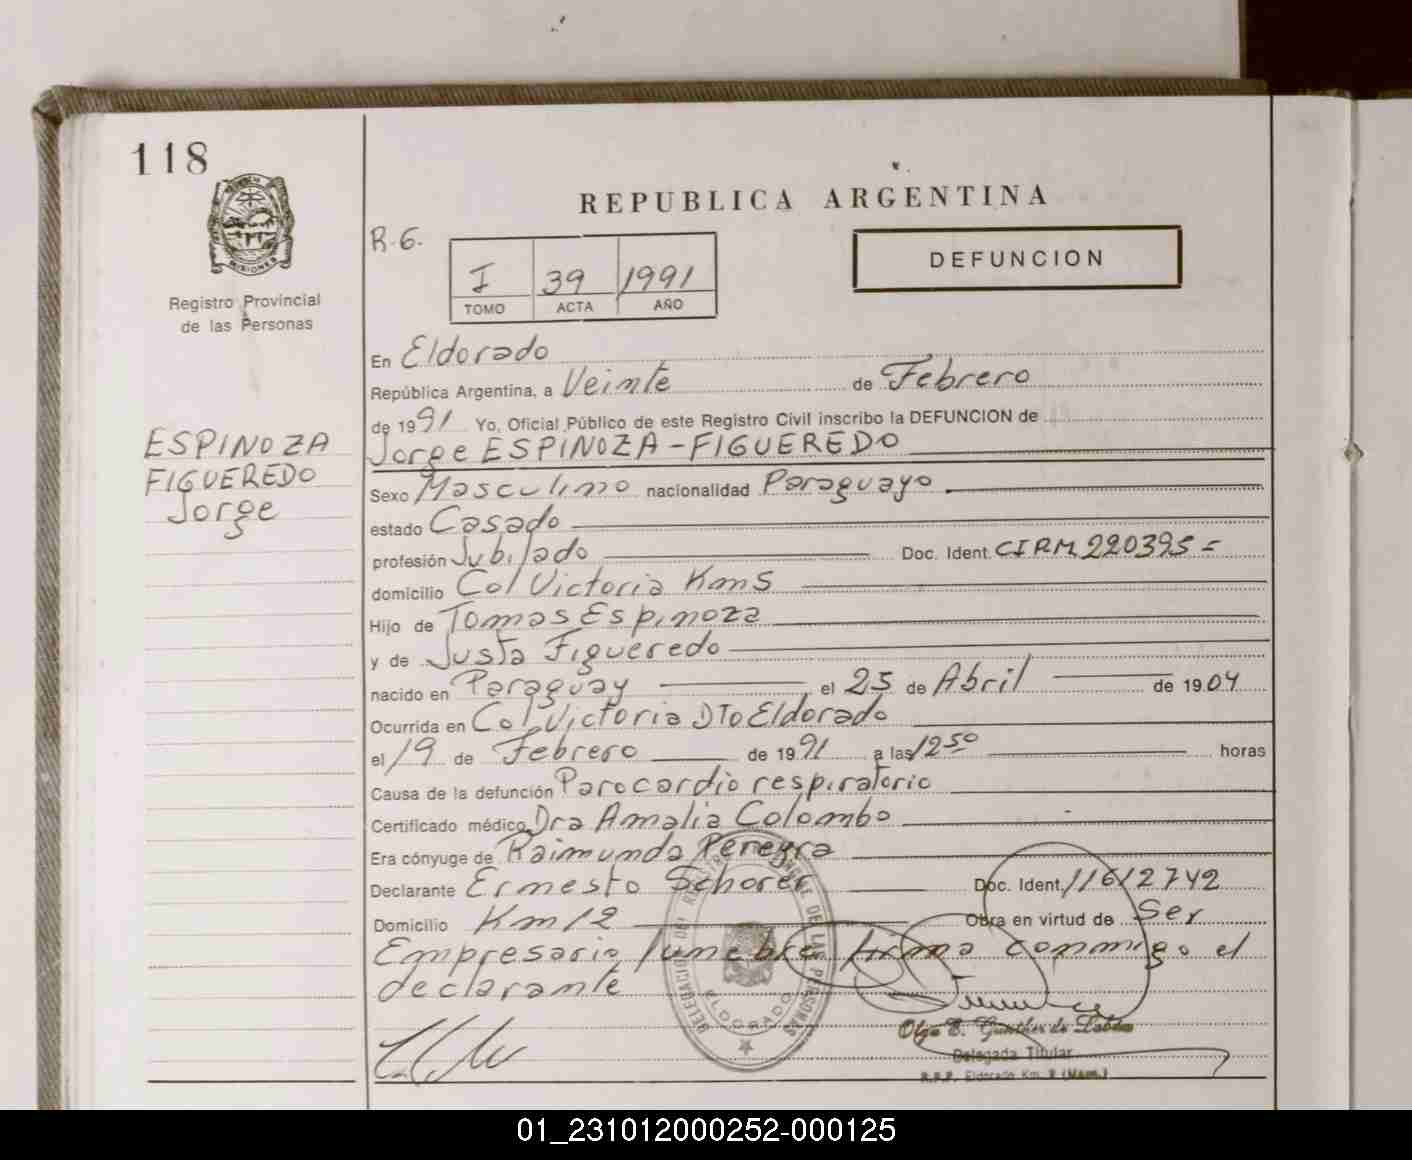 118
MISIONES
Registro Provincial
de las Personas
ESPINOZA
FIGUEREDO
Jorge
REPUBLICA ARGENTINA
R.G.
I 39 1991
TOMO ACTA AÑO
DEFUNCION
En Eldorado
República Argentina, a Veinte de Febrero
de 1991 Yo, Oficial Público de este Registro Civil inscribo la DEFUNCION de
Jorge ESPINOZA-FIGUEREDO
Sexo Masculino nacionalidad Paraguayo
estado Casado
profesión Jubilado Doc. Ident. CIRM 220395=
domicilio Col Victoria Km5
Hijo de Tomas Espinoza
y de Justa Figueredo
nacido en Paraguay el 25 de Abril de 1904
Ocurrida en Col Victoria DTo Eldorado
el 19 de Febrero de 1991 a las 12 50 horas
Causa de la defunción Parocardio respiratorio
Certificado médico Dra Amalia Colombo
Era cónyuge de Raimunda Pereyra
Declarante Ernesto Schorer Doc. Ident. 11612742
Domicilio Km 12 Obra en virtud de Ser
Empresario funebre firma conmigo el
declarante
DELEGACION DEL REGISTRO DE LAS PERSONAS
ELDORADO
Olga E. Gunther de
Delegada Titular
R.P.P. Eldorado Km. 9 (Mnes.)
01_231012000252-000125